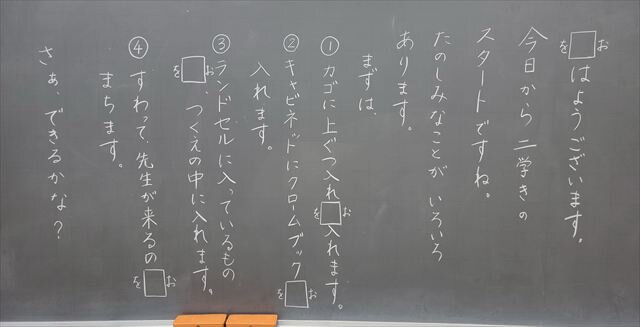 □はようございます。
を お
今日から二学きの
スタートですね。
たのしみなことがいろいろ
あります。
まずは、
①カゴに上ぐつ入れ□入れます。
を お
②キャビネットにクロームブック□
を お
入れます。
③ランドセルに入っているもの
□、つくえの中に入れます。
を お
④すわって、先生が来るの□
を お
まちます。
さぁ、できるかな？